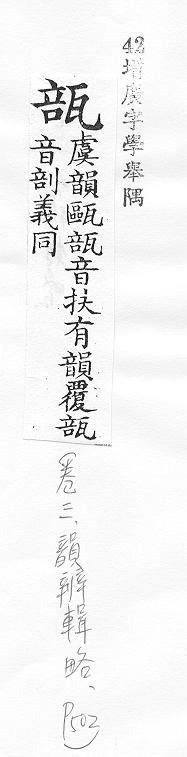 42增廣字學舉隅
瓿
虞韻甌瓿音扶有韻覆瓿
音剖義同
(卷三、韻辨輯略、P502)